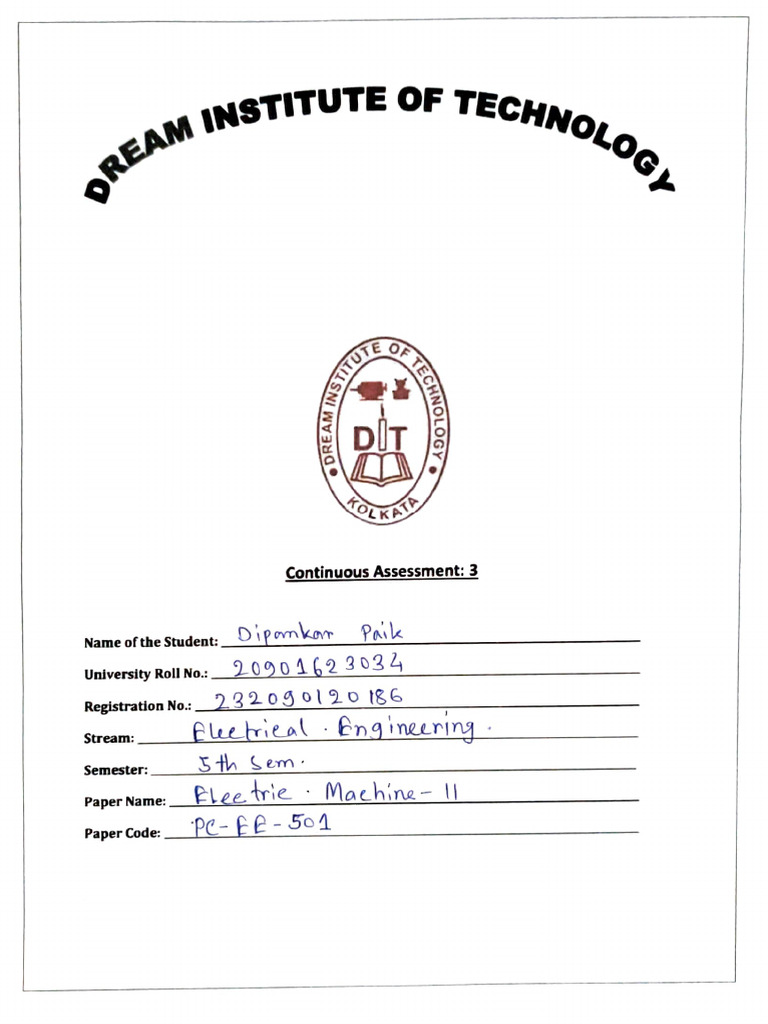 DREAM INSTITUTE OF TECHNOLOGY
DREAM INSTITUTE OF TECHNOLOGY
DIT
KOLKATA
Continuous Assessment: 3
Name of the Student: Dipamkar Paik
University Roll No.: 20901623034
Registration No.: 232090120186
Stream: Electrical . Engineering .
Semester: 5th Sem.
Paper Name: Electric . Machine - II
Paper Code: PC-EE-501